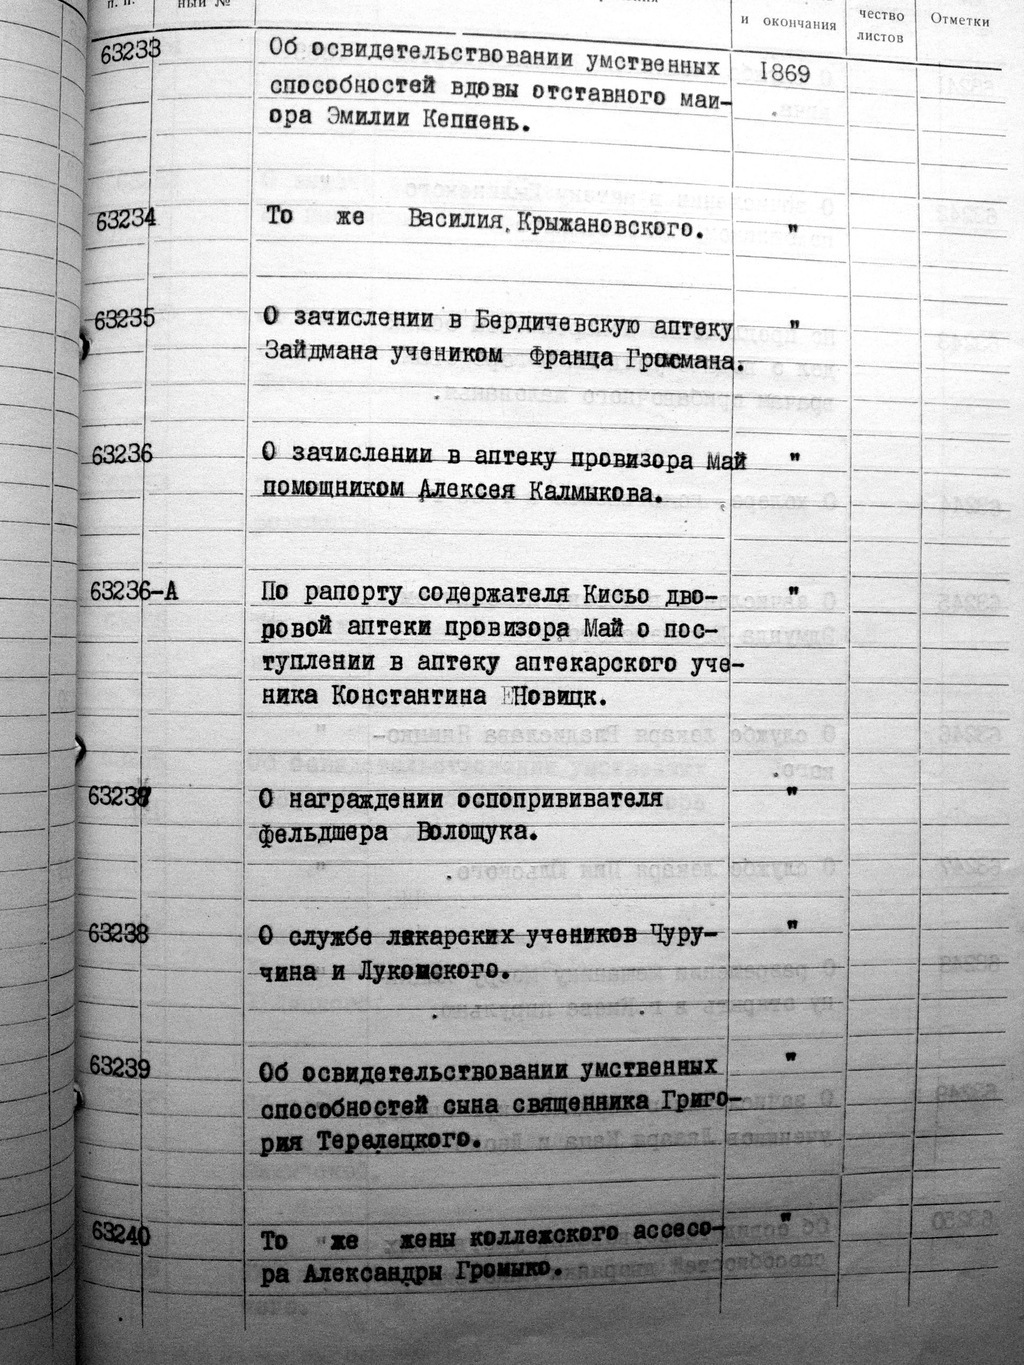 п. п.
ный №
и окончания
чество
листов
Отметки
63233
Об освидетельствовании умственных
1869
способностей вдовы отставного маи-
ора Эмилии Кеппень.
63234
То же Василия Крыжановского.
"
63235
О зачислении в Бердичевскую аптеку
"
Зайдмана учеником Франца Гроссмана.
63236
О зачислении в аптеку провизора Май
"
помощником Алексея Калмыкова.
63236-А
По рапорту содержателя Кисьо дво-
"
ровой аптеки провизора Май о пос-
туплении в аптеку аптекарского уче-
ника Константина Новицк.
63237
О награждении оспопрививателя
"
фельдшера Волощука.
63238
О службе лекарских учеников Чуру-
"
чина и Лукомского.
63239
Об освидетельствовании умственных
"
способностей сына священника Григо-
рия Терелецкого.
63240
То "же жены коллежского ассесо-
"
ра Александры Громыко.